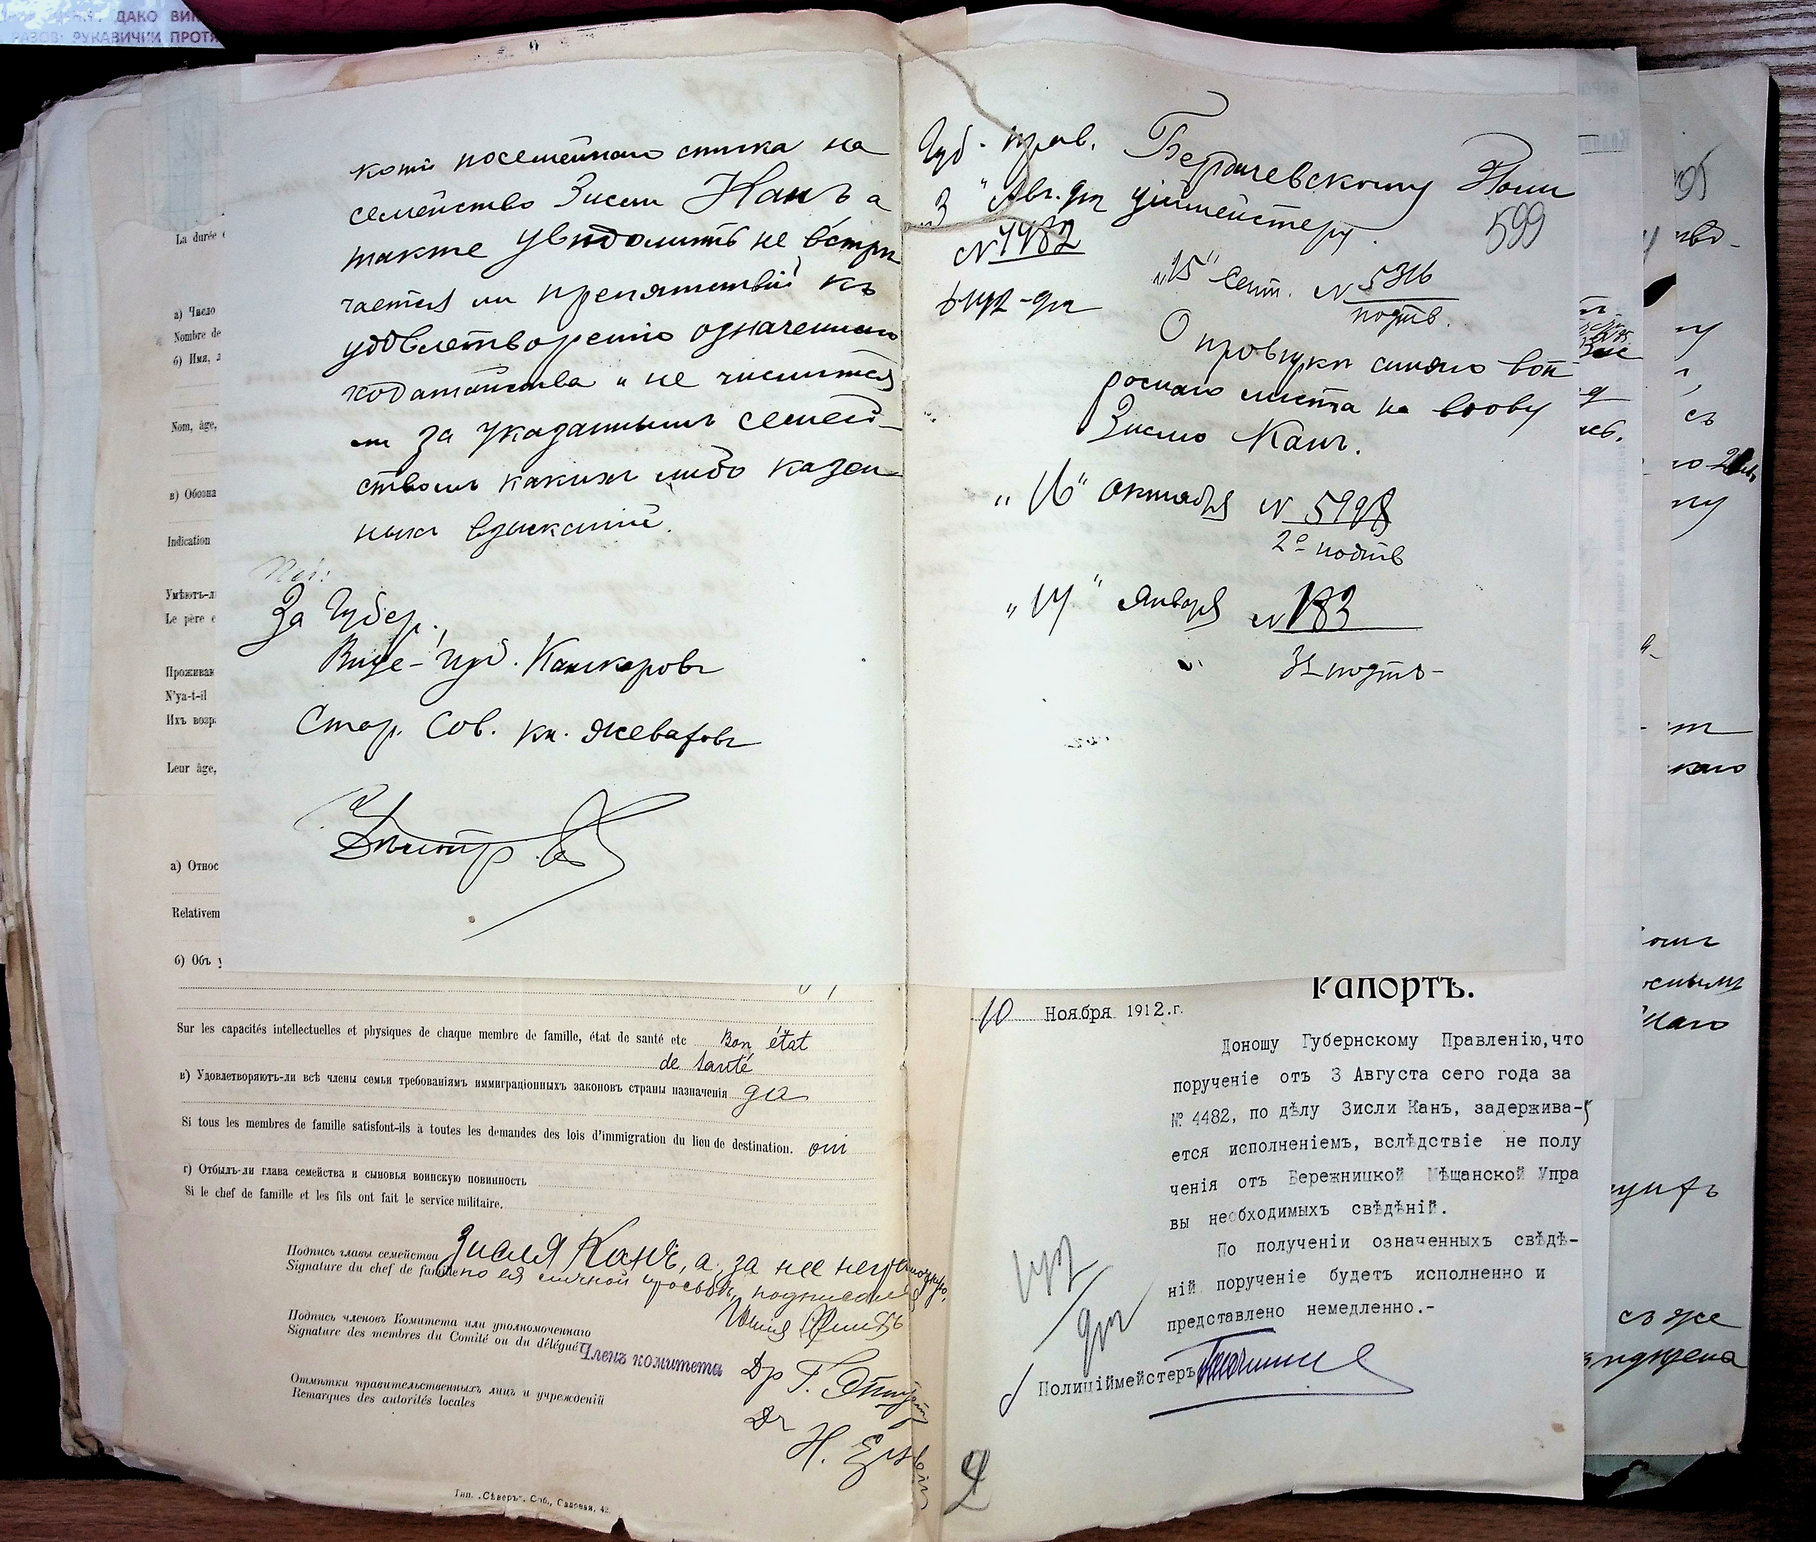 ДАКО
РУКАВИЧКИ ПРОТИ
копіи посемейнаго списка на
семейство Зисли Канъ а
также увѣдомить не встрѣ
чается ли препятствій къ
удовлетворенію означеннаго
ходатайства и не числится
ли за указаннымъ семей-
ствомъ какихъ либо казен
ныхъ взысканій.
За Губер.
Вице-Губ. Кашкаровъ
Стар. Сов. кн. Жеваховъ
Губ. прав.
3 " Авг. дня
№ 4482
Бердичевскому Поли
ціймейстеру.
599
"15" Сент. № 5316
подтв.
О провѣркѣ синяго воп
роснаго листа на вдову
Зислю Канъ.
"16" октября № 5998
2е подтв
"14" января № 183
3е подтв-
La durée
а) Число
Nombre de
б) Имя,
Nom, âge,
в) Обозна
Indication
Умѣютъ-л
Le père e
Проживаю
N'ya-t-il
Ихъ возр
Leur âge,
а) Относ
Relativem
б) Объ у
Sur les capacités intellectuelles et physiques de chaque membre de famille, état de santé etc Bon état
de santé
в) Удовлетворяютъ-ли всѣ члены семьи требованіямъ иммиграціонныхъ законовъ страны назначенія да
Si tous les membres de famille satisfont-ils à toutes les demandes des lois d'immigration du lieu de destination. oui
г) Отбылъ-ли глава семейства и сыновья воинскую повинность
Si le chef de famille et les fils ont fait le service militaire.
Подпись главы семейства Зисля Канъ, а за нее неграмотную,
Signature du chef de famille по ея личной просьбѣ, подписалъ
Подпись членовъ Комитета или уполномоченнаго
Signature des membres du Comité ou du délégué Членъ комитета
Др Г.
Отмѣтки правительственныхъ лицъ и учрежденій
Remarques des autorités locales
Др
Н.
Тип. „Сѣверъ", Спб., Садовая, 42
Рапортъ.
10 Ноября 1912.г.
Доношу Губернскому Правленію,что
порученіе отъ 3 Августа сего года за
№ 4482, по дѣлу Зисли Канъ, задержива-
ется исполненіемъ, вслѣдствіе не полу
ченія отъ Бережницкой Мѣщанской Упра
вы необходимыхъ свѣдѣній.
По полученіи означенныхъ свѣдѣ-
ній порученіе будетъ исполненно и
представлено немедленно.-
Полиціймейстеръ